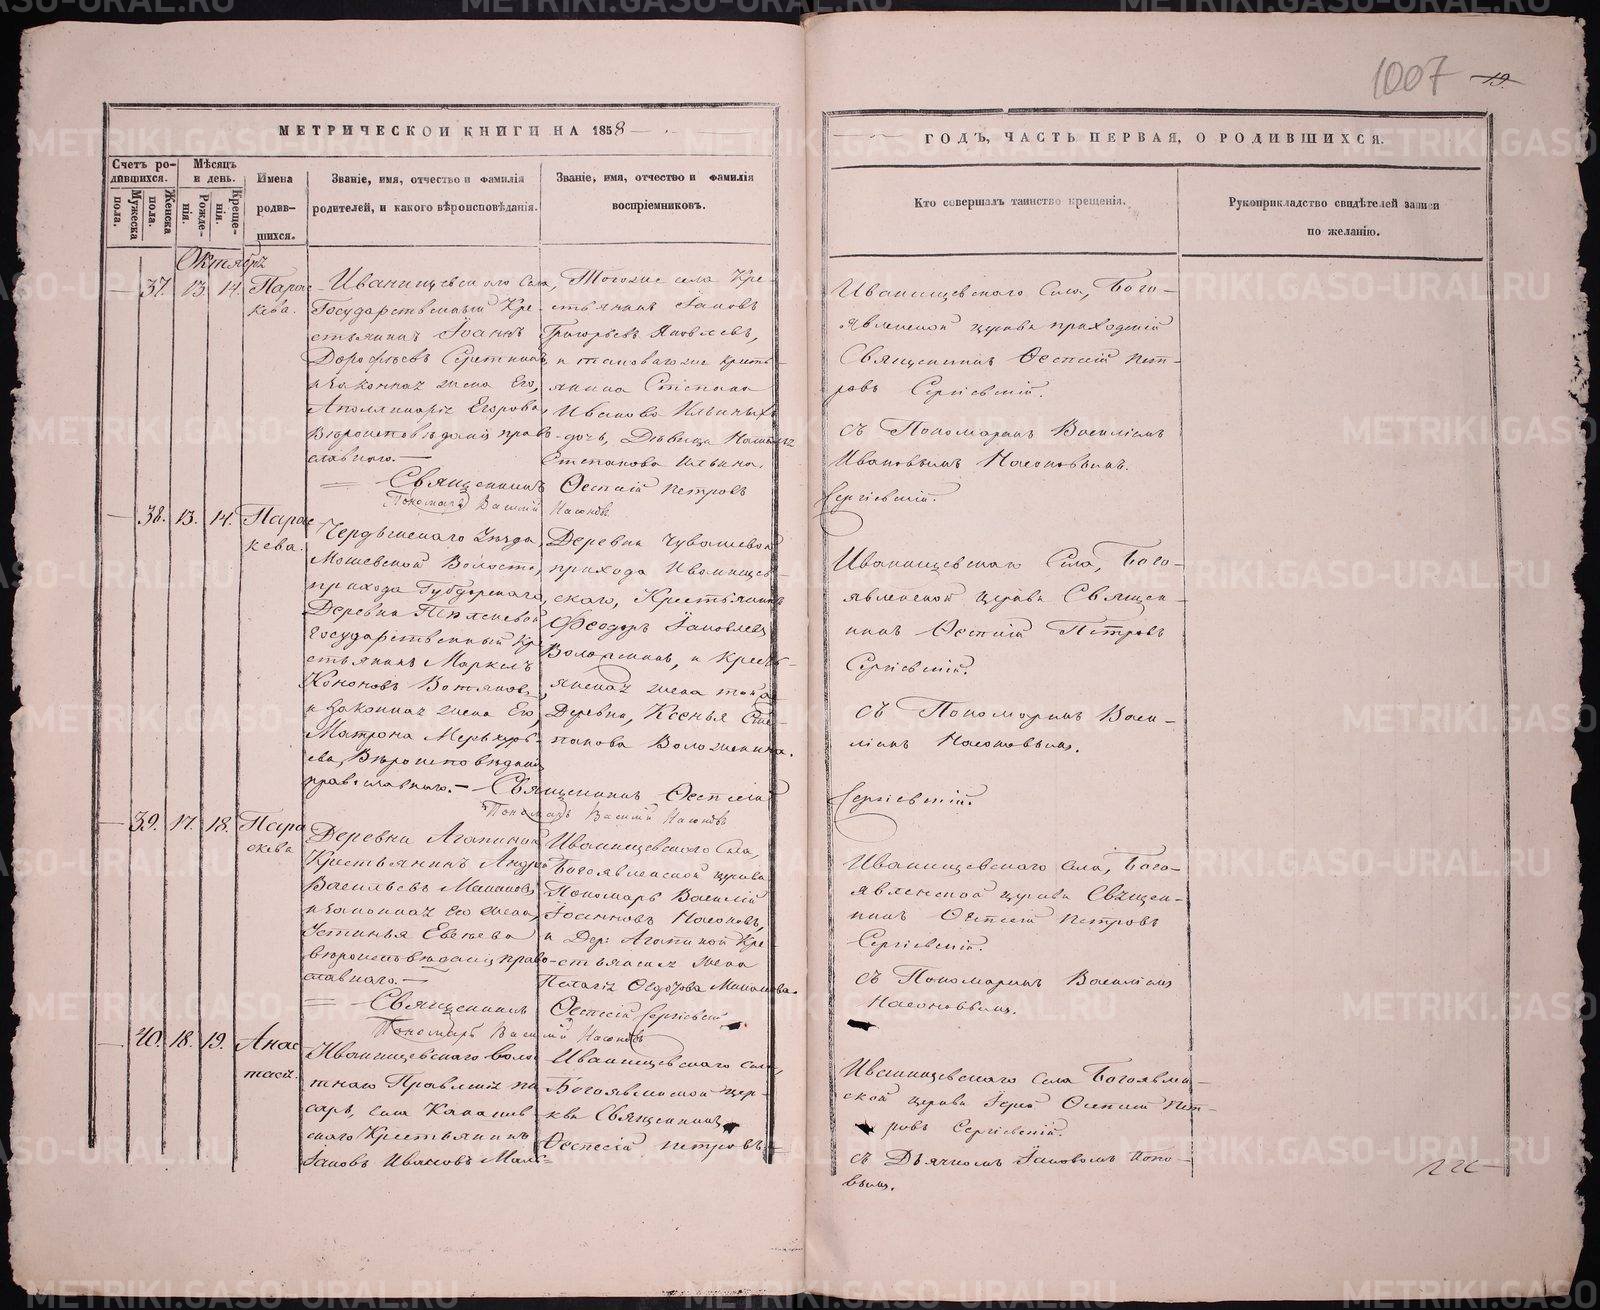 1007 19.
МЕТРИЧЕСКОЙ КНИГИ НА 1858
ГОДЪ, ЧАСТЬ ПЕРВАЯ, О РОДИВШИХСЯ.
Счетъ родившихся.
Мужеска пола.
Женска пола.
Мѣсяцъ и день.
Рожденія.
Крещенія.
Имена родившихся.
Званіе, имя, отчество и фамилія родителей, и какого вѣроисповѣданія.
Званіе, имя, отчество и фамилія воспріемниковъ.
Кто совершалъ таинство крещенія.
Рукоприкладство свидѣтелей записи по желанію.
Октябрь
37. 13. 14. Парас
кева.
Иванищевскаго Села,
Государственный Кре-
стьянинъ Іоаннъ
Дорофѣевъ
и законная жена Его,
Аполлинарія Егорова,
Вѣроисповѣданія право
славнаго.
Тогоже села Кре-
стьянинъ Іаковъ
Григорьевъ Яковлевъ,
и таковагоже кресть
янина Степана
Иванова Ильиныхъ
дочь, Дѣвица
Степанова Ильина.
Священникъ Ѳеспесій Петровъ
Пономарь Василій Насоновъ
Иванищевскаго Села, Бого-
явленской церкви приходскій
Священникъ Ѳеспесій Пет-
ровъ Сергіевскій.
съ Пономаремъ Василіемъ
Ивановымъ Насоновымъ.
Сергіевскій.
38. 13. 14. Парас
кева.
Чердынскаго Уѣзда,
Мошевской Волости,
прихода Губдорскаго,
Деревни
Государственный Кре
стьянинъ Маркелъ
Кононовъ
и законная жена Его,
Матрона Меркурь-
ева, Вѣроисповѣданія
православнаго. Священникъ Ѳеспесій
Пономарь Василій Насоновъ
Деревни Чувашевой
прихода Иванищев-
скаго, Крестьянинъ
Ѳеодоръ Іаковлевъ
Воложенинъ, и Кресть-
янская жена той же
Деревни, Ксенья Сте-
панова Воложенина.
Иванищевскаго Села, Бого-
явленской церкви Священ-
никъ Ѳеспесій Петровъ
Сергіевскій.
съ Пономаремъ Васи-
ліемъ Насоновымъ.
Сергіевскій.
39. 17. 18. Пара
скева
Деревни Агапиной
Крестьянинъ Андрей
Васильевъ
и законная его жена,
Устинья Евсѣева
вѣроисповѣданія право
славнаго.
Иванищевскаго Села,
Богоявленской церкви
Пономарь Василій
Іоанновъ Насоновъ,
и Дер: Агапиной Кре-
стьянская жена
Пелагія
Священникъ Ѳеспесій Сергіевскій
Пономарь Василій Насоновъ
Иванищевскаго Села, Бого-
явленской церкви Священ-
никъ Ѳеспесій Петровъ
Сергіевскій.
съ Пономаремъ Василіемъ
Насоновымъ.
40. 18. 19. Анас
тасія.
Иванищевскаго воло
стнаго Правленія пи
сарь, села
скаго Крестьянинъ
Іаковъ Ивановъ
Иванищевскаго села,
Богоявленской цер-
кви Священникъ
Ѳеспесій Петровъ
Иванищевскаго села Богоявлен-
ской церкви Іерей Ѳеспесій Пет-
ровъ Сергіевскій.
съ Дьячкомъ Іаковомъ Попо-
вымъ.